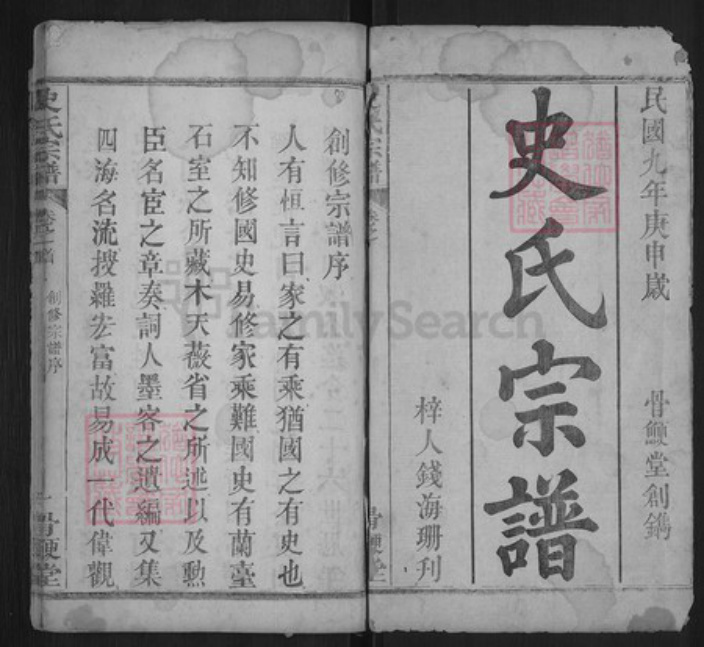 民國九年庚申歲 骨鯁堂創鐫
史氏宗譜
梓人錢海珊刋
史氏宗譜
骨鯁堂
創修宗譜序
人有恒言曰家之有乘猶國之有史也
不知修國史易修家乘難國史有蘭臺
石室之所藏木天薇省之所述以及勲
臣名宦之章奏詞人墨客之遺編又集
四海名流搜羅宏富故易成一代偉觀
史氏宗譜 卷之首 創修宗譜序 一 骨鯁堂
FamilySearch